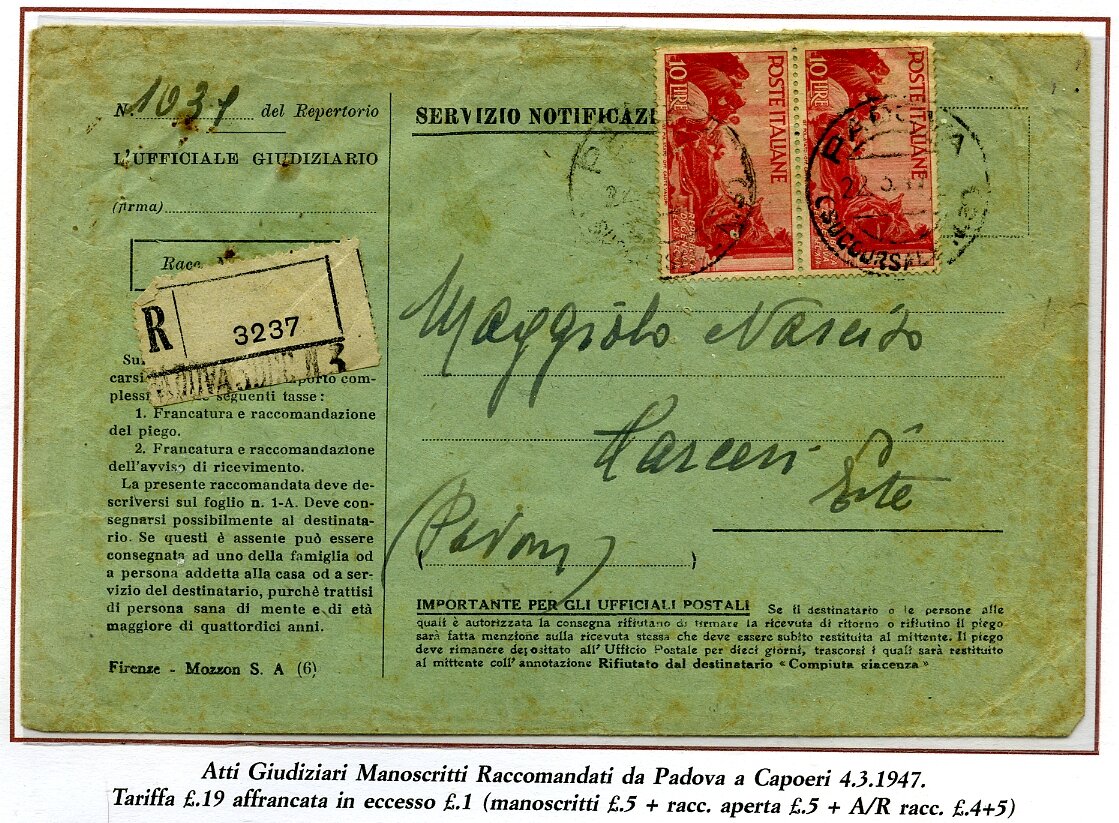 N. 1031 del Repertorio
L'UFFICIALE GIUDIZIARIO
(firma)
Racc.
R
3237
PADOVA SUCC. N. 3
Su
carsi porto com-
plessi seguenti tasse:
1. Francatura e raccomandazione
del piego.
2. Francatura e raccomandazione
dell'avviso di ricevimento.
La presente raccomandata deve de-
scriversi sul foglio n. 1-A. Deve con-
segnarsi possibilmente al destinata-
rio. Se questi è assente può essere
consegnata ad uno della famiglia od
a persona addetta alla casa od a ser-
vizio del destinatario, purchè trattisi
di persona sana di mente e di età
maggiore di quattordici anni.
Firenze - Mozzon S. A (6)
SERVIZIO NOTIFICAZI
10 LIRE
POSTE ITALIANE
10 LIRE
POSTE ITALIANE
PADOVA
(SUCCURSALE N. 3)
Maggiolo Narciso
Carceri
Este
(Padova)
IMPORTANTE PER GLI UFFICIALI POSTALI Se il destinatario o le persone alle
quali è autorizzata la consegna rifiutano di firmare la ricevuta di ritorno o rifiutino il piego
sarà fatta menzione sulla ricevuta stessa che deve essere subito restituita al mittente. Il piego
deve rimanere depositato all'Ufficio Postale per dieci giorni, trascorsi i quali sarà restituito
al mittente coll'annotazione Rifiutato dal destinatario «Compiuta giacenza»
Atti Giudiziari Manoscritti Raccomandati da Padova a Capoeri 4.3.1947.
Tariffa £.19 affrancata in eccesso £.1 (manoscritti £.5 + racc. aperta £.5 + A/R racc. £.4+5)